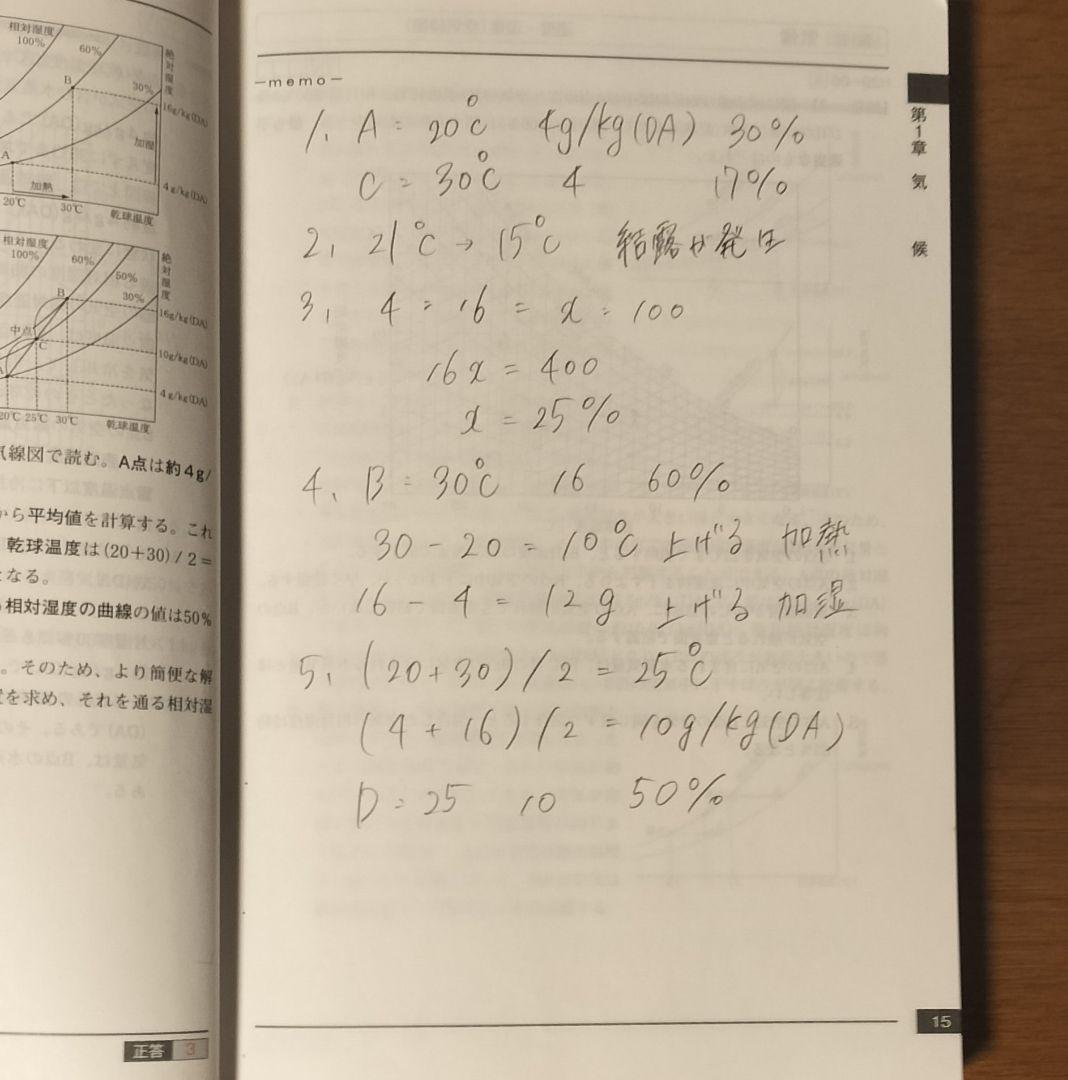 相対湿度
100%
60%
B
30%
絶対湿度
16g/kg(DA)
加湿
A
加熱
4g/kg(DA)
20℃
30℃
乾球温度
相対湿度
100%
60%
50%
B
30%
絶対湿度
16g/kg(DA)
中点
C
10g/kg(DA)
A
4g/kg(DA)
20℃ 25℃ 30℃
乾球温度
気線図で読む。A点は約4g/
から平均値を計算する。これ
乾球温度は(20+30)/2=
となる。
相対湿度の曲線の値は50%
。そのため、より簡便な解
を求め、それを通る相対湿
正答 3
-memo-
1. A = 20℃ 4g/kg(DA) 30%
C = 30℃ 4 17%
2. 21℃ → 15℃ 結露が発生
3. 4 = 16 = x = 100
16x = 400
x = 25%
4. B = 30℃ 16 60%
30 - 20 = 10℃ 上げる 加熱
16 - 4 = 12g 上げる 加湿
5. (20+30)/2 = 25℃
(4+16)/2 = 10g/kg(DA)
D = 25 10 50%
第1章 気候
15